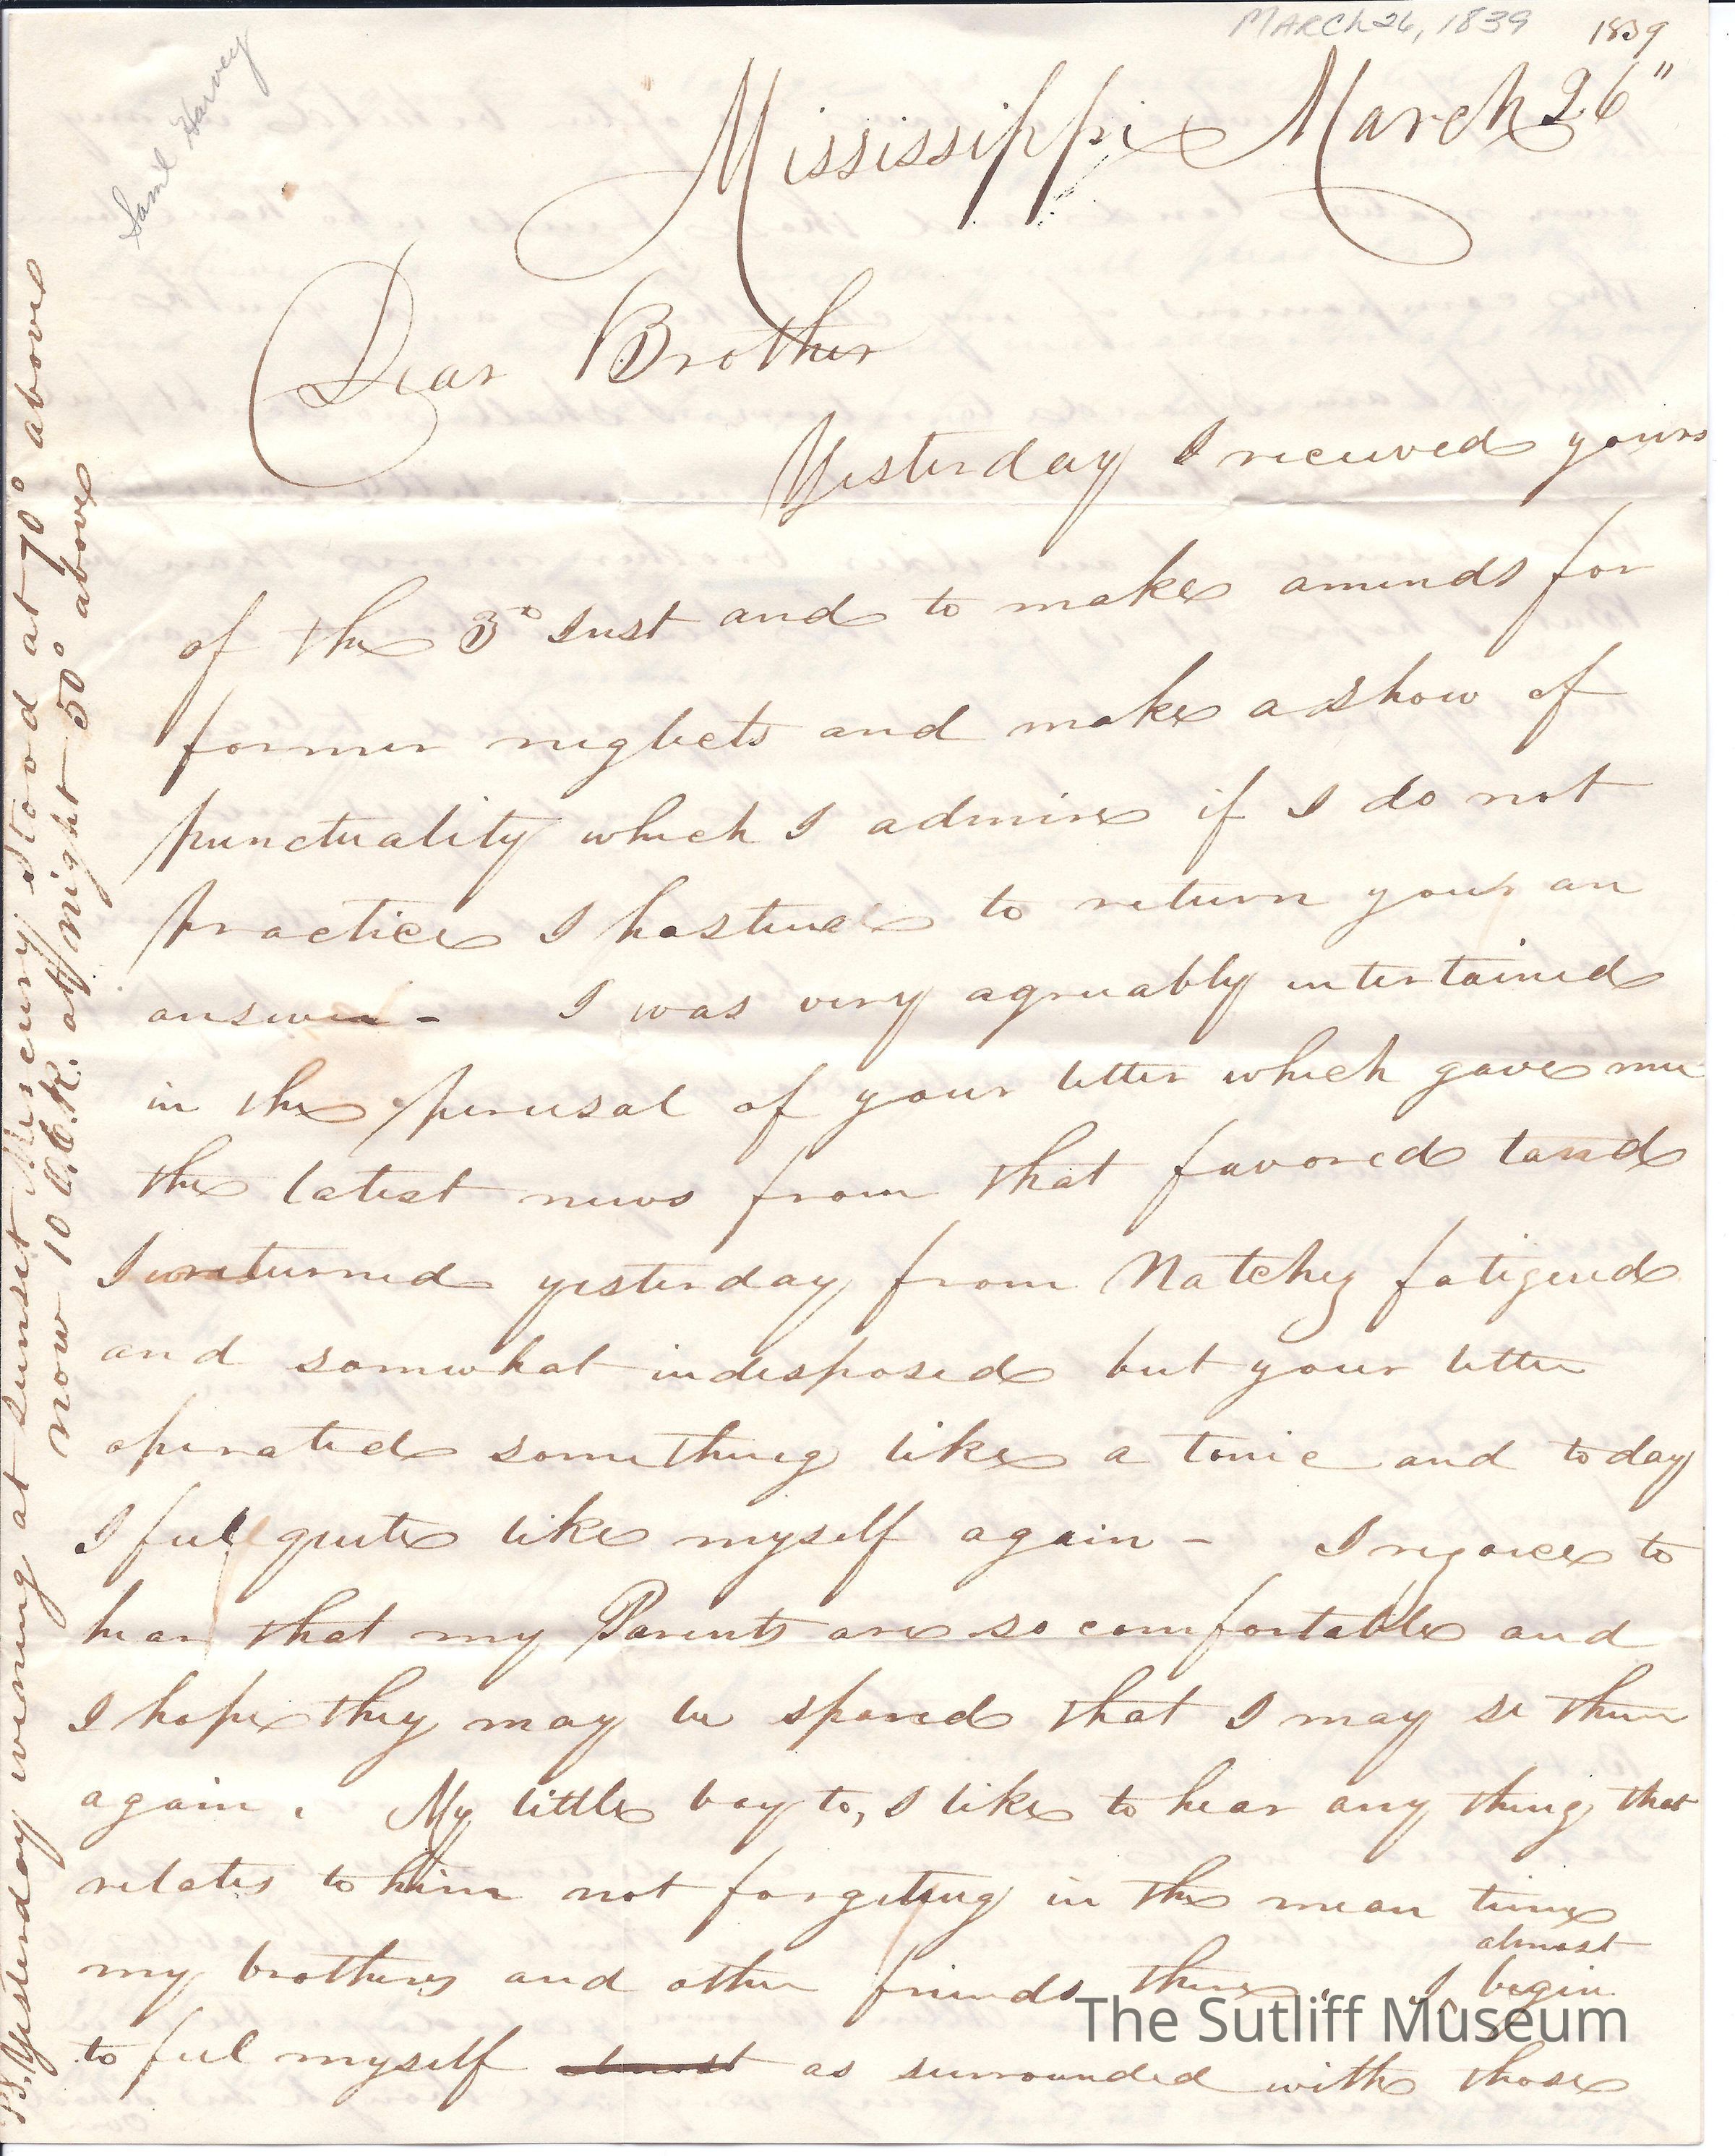 MARCH 26, 1839 1839
Saml Harvey
Mississippi March 26"
Dear Brother
Yesterday I received yours
of the 3d Inst and to make amends for
former neglects and make a show of
punctuality which I admire if I do not
practice I hasten to return your an
answer - I was very agreeably entertained
in the perusal of your letter which gave me
the latest news from that favored land
I returned yesterday from Natchez fatigued
and somwhat indisposed but your letter
operated something like a tonic and today
I feel quite like myself again - I rejoice to
hear that my Parents are so comfortable and
I hope they may be spared that I may se them
again. My little boy to, I like to hear any thing that
relates to him not forgeting in the mean time
my brothers and other friends there. I almost begin
to feel myself as surrounded with those
P.S. Yesterday evening at sunset Mercury stood at 70° above
now 10 O.C.K. at night 50° above
The Sutliff Museum